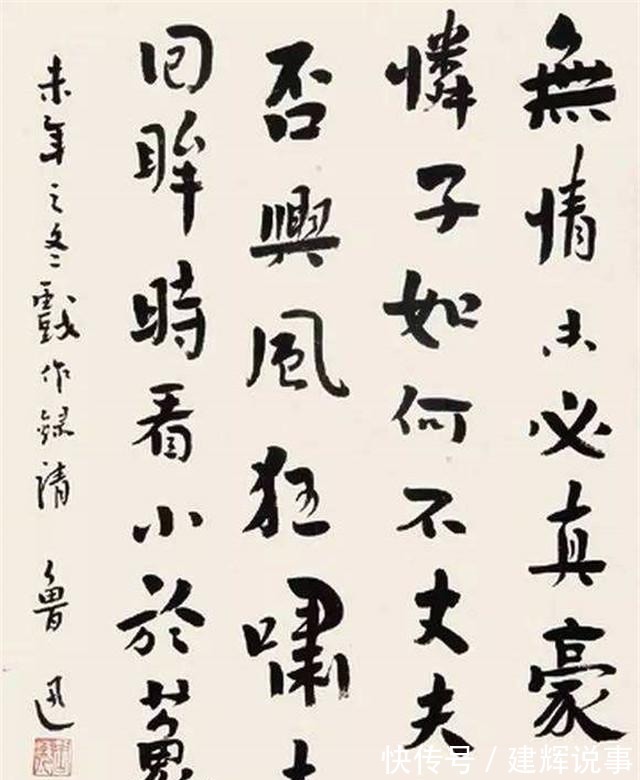 無情未必真豪
憐子如何不丈夫
否興風狂嘯
回眸時看小於
未年之冬戲作錄請
魯迅
快传号 / 建辉说事